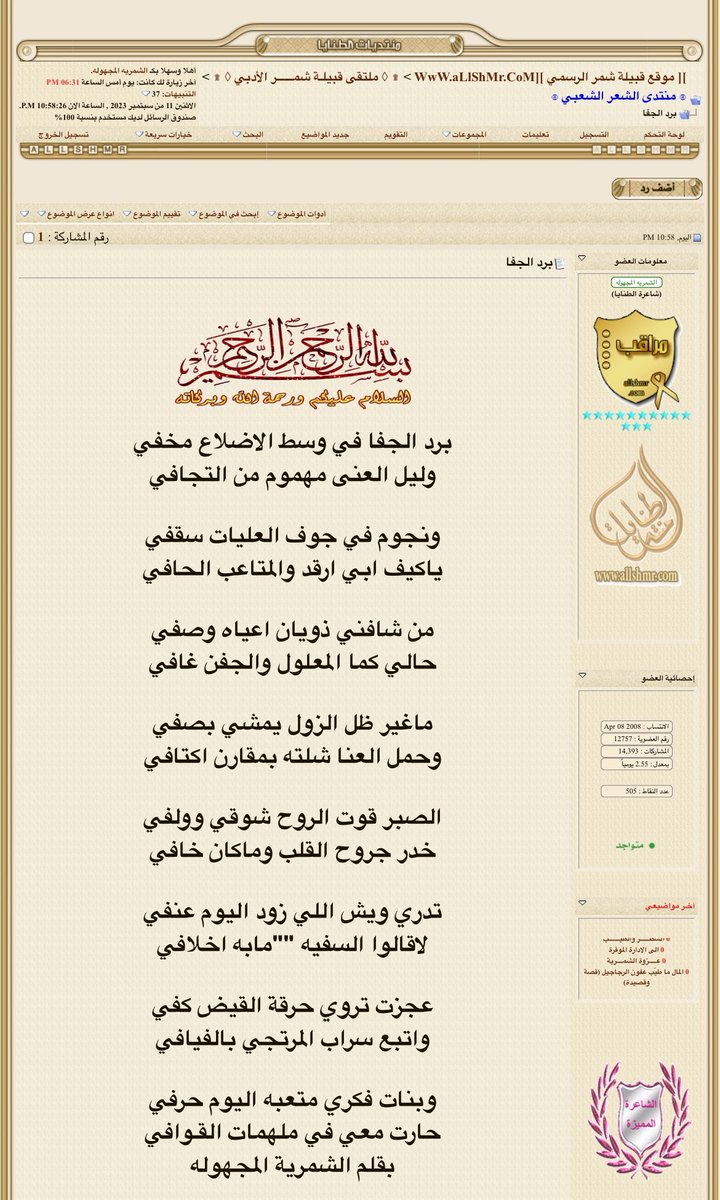 منتديات الطنايا
][ موقع قبيلة شمر الرسمي ][WwW.aLlShMr.CoM > ۩ ◊ ملتقى قبيلة شمـــــر الأدبي ◊ ۩ >
۞ منتدى الشعر الشعبي ۞
برد الجفا
أهلا وسهلا بك الشمريه المجهوله.
آخر زيارة لك كانت: يوم أمس الساعة 06:31 PM
التنبيهات: 37
الاثنين 11 من سبتمبر 2023 , الساعة الان 10:58:26 P.M.
صندوق الرسائل لديك مستخدم بنسبة 100%
لوحة التحكم التسجيل تعليمات المجموعات التقويم جديد المواضيع البحث خيارات سريعة تسجيل الخروج
A L L S H M R
أضف رد
أدوات الموضوع إبحث في الموضوع تقييم الموضوع انواع عرض الموضوع
اليوم, 10:58 PM
رقم المشاركة : 1
معلومات العضو
الشمريه المجهوله
(شاعرة الطنايا)
مراقب
allshmr
.com
www.allshmr.com
إحصائية العضو
الانتساب : Apr 08 2008
رقم العضوية : 12757
المشاركات : 14,393
بمعدل : 2.55 يومياً
عدد النقاط : 505
متواجد
آخر مواضيعي
0 الى الادارة الموقرة
0 عــزوة الشمــرية
0 المال ما طيّب عفون الرجاجيل (قصة وقصيدة)
الشاعرة
المميزة
برد الجفا
بسم الله الرحمن الرحيم
السلام عليكم ورحمة الله وبركاته
برد الجفا في وسط الاضلاع مخفي
وليل العنى مهموم من التجافي
ونجوم في جوف العليات سقفي
ياكيف ابي ارقد والمتاعب الحافي
من شافني ذويان اعياه وصفي
حالي كما المعلول والجفن غافي
ماغير ظل الزول يمشي بصفي
وحمل العنا شلته بمقارن اكتافي
الصبر قوت الروح شوقي وولفي
خدر جروح القلب وماكان خافي
تدري ويش اللي زود اليوم عنفي
لاقالوا السفيه ""مابه اخلافي
عجزت تروي حرقة القيض كفي
واتبع سراب المرتجي بالفيافي
وبنات فكري متعبه اليوم حرفي
حارت معي في ملهمات القوافي
بقلم الشمرية المجهوله